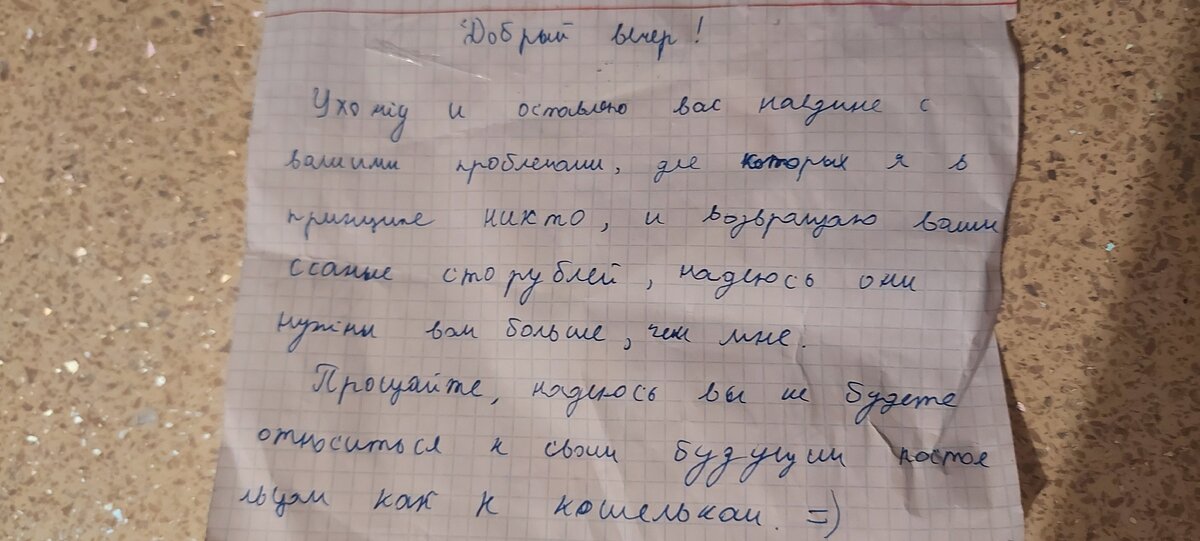 Добрый вечер!
Ухожу и оставляю вас наедине с
вашими проблемами, для которых я в
принципе никто, и возвращаю ваши
ссаные сто рублей, надеюсь они
нужны вам больше, чем мне.
Прощайте, надеюсь вы не будете
относиться к своим будущим постоя
льцам как к кошелькам. =)